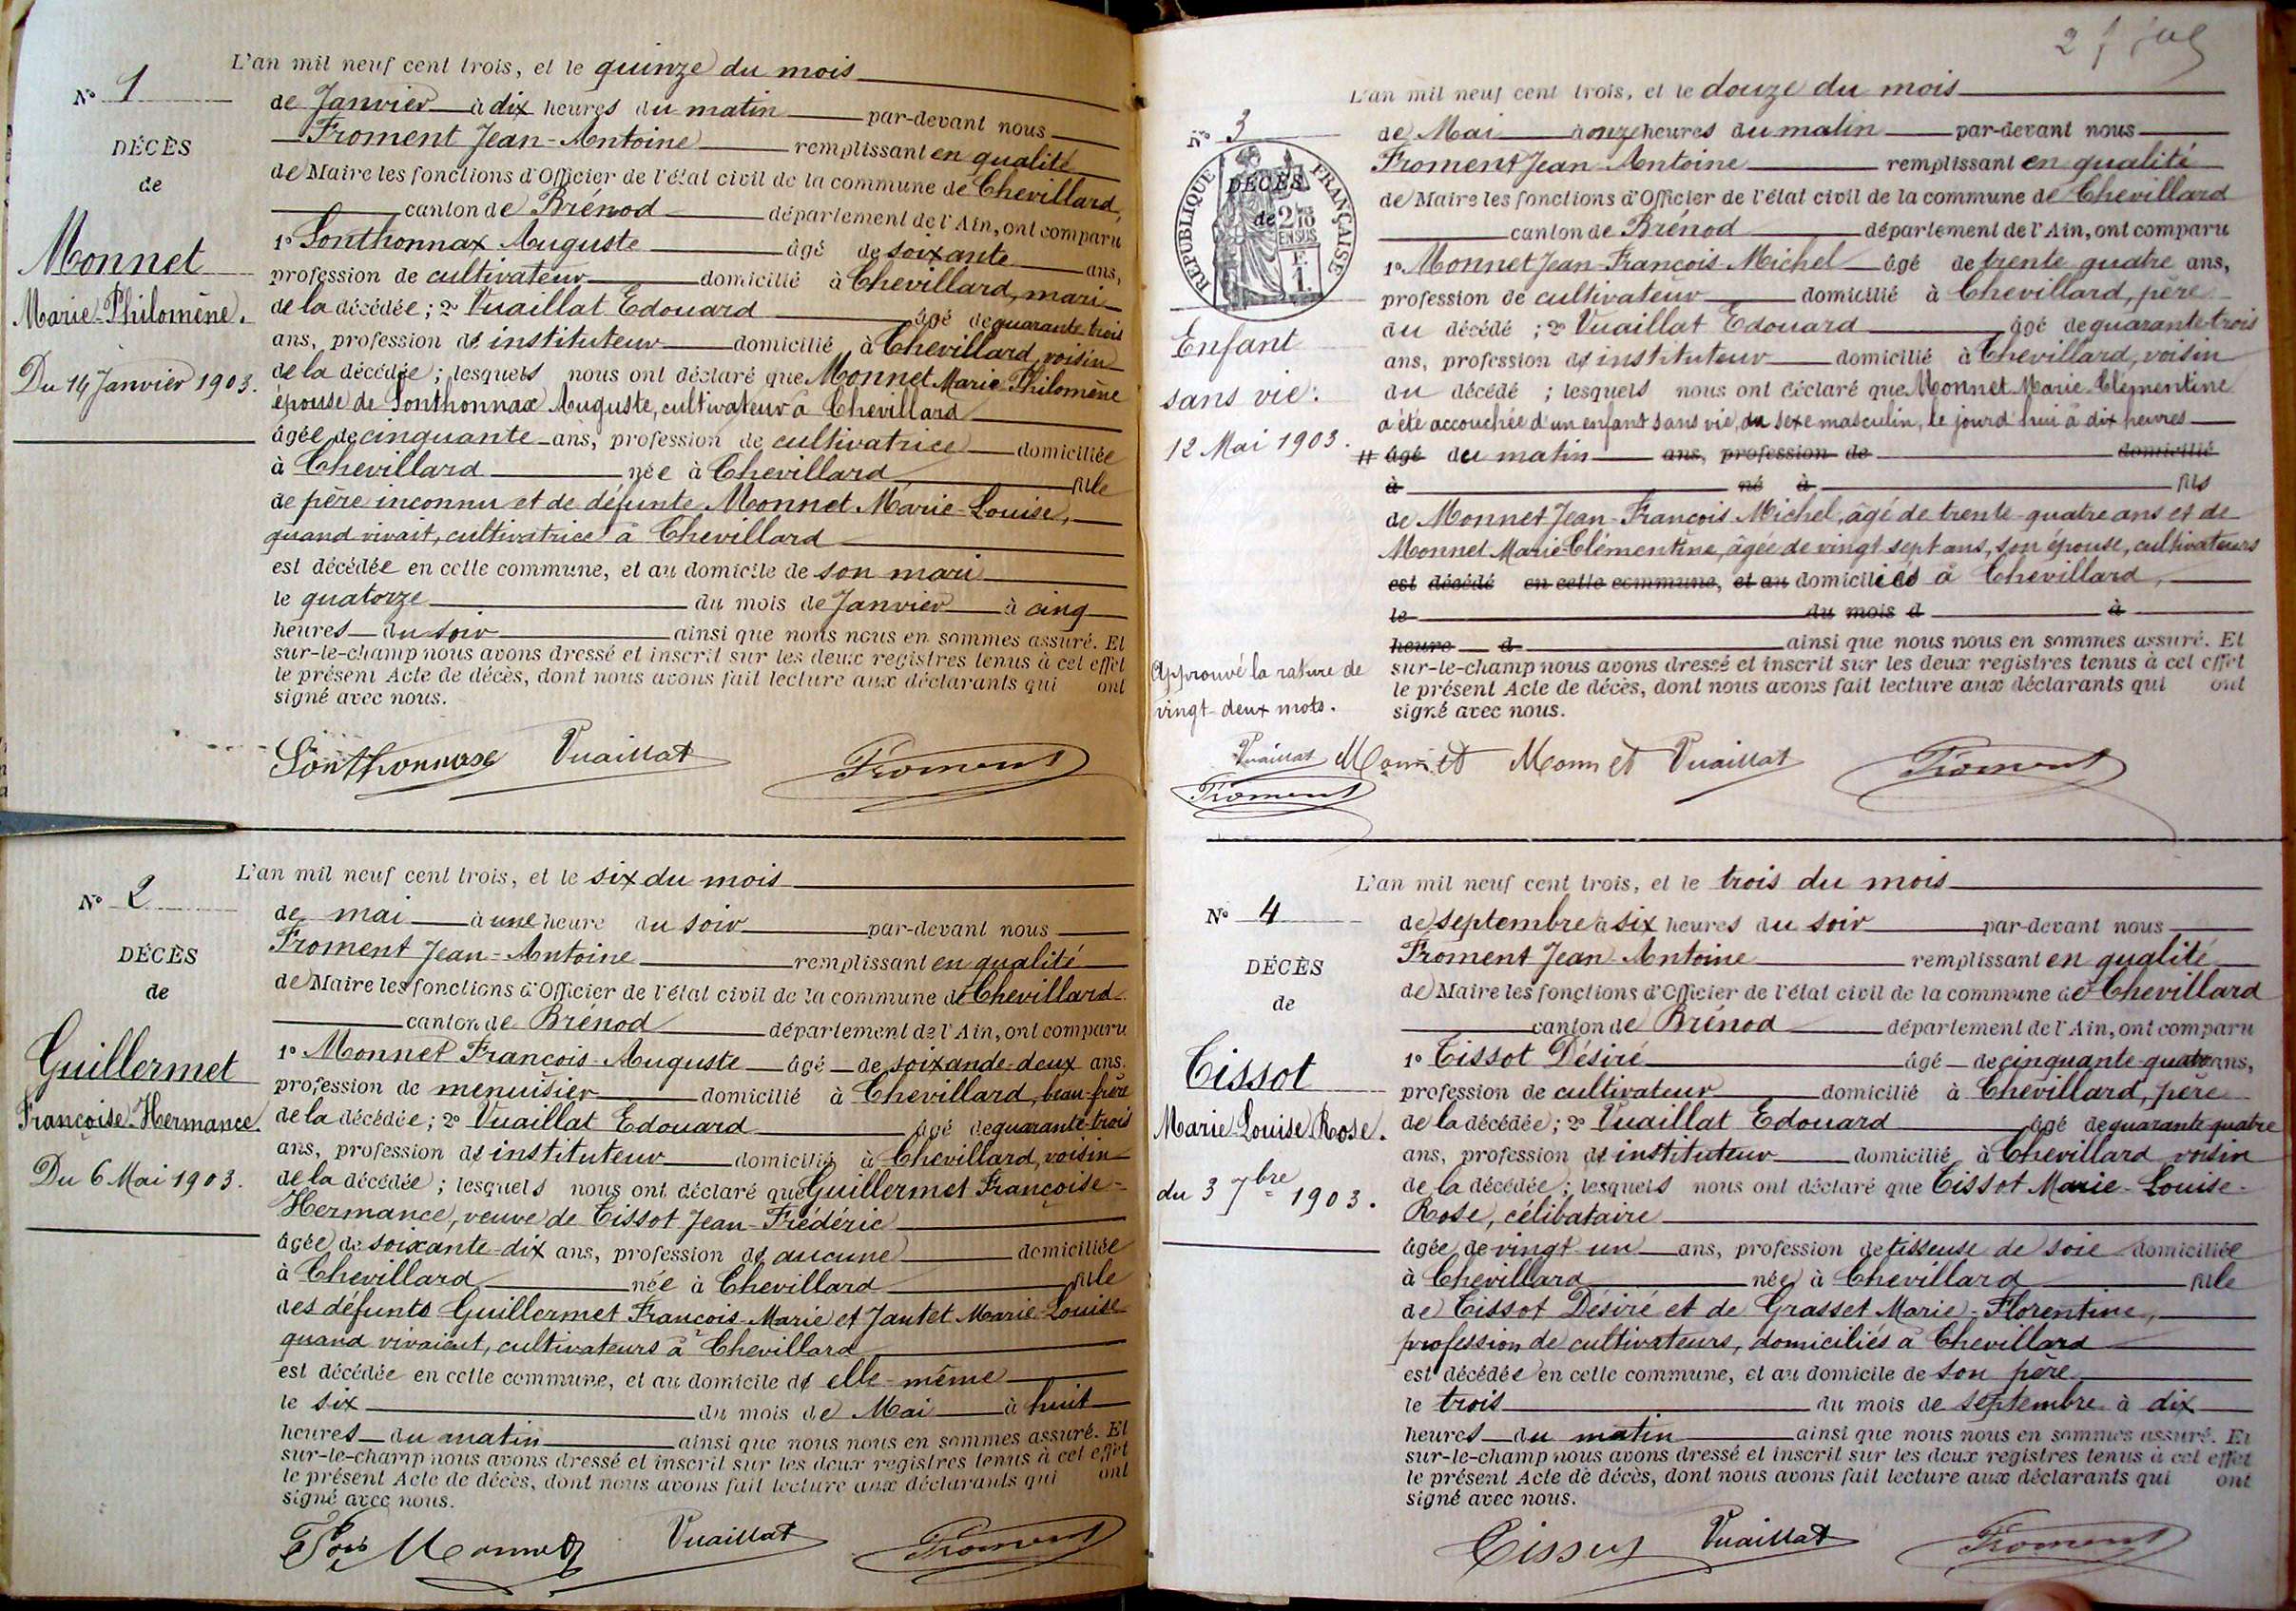 L'an mil neuf cent trois, et le quinze du mois
N° 1
de Janvier à dix heures du matin par-devant nous
DÉCÈS
de
Monnet
Marie-Philomène.
Du 14 Janvier 1903.
Froment Jean-Antoine remplissant en qualité
de Maire les fonctions d'Officier de l'état civil de la commune de Chevillard,
canton de Brénod département de l'Ain, ont comparu
1° Sonthonnax Auguste âgé de soixante ans,
profession de cultivateur domicilié à Chevillard, mari
de la décédée; 2° Vuaillat Edouard âgé de quarante-trois
ans, profession d' instituteur domicilié à Chevillard, voisin
de la décédée; lesquels nous ont déclaré que Monnet Marie-Philomène
épouse de Sonthonnax Auguste, cultivateur à Chevillard
âgée de cinquante ans, profession de cultivatrice domiciliée
à Chevillard née à Chevillard fille
de père inconnu et de défunte Monnet Marie-Louise,
quand vivait, cultivatrice à Chevillard
est décédée en cette commune, et au domicile de son mari
le quatorze du mois de Janvier à cinq
heures du soir ainsi que nous nous en sommes assuré. Et
sur-le-champ nous avons dressé et inscrit sur les deux registres tenus à cet effet
le présent Acte de décès, dont nous avons fait lecture aux déclarants qui ont
signé avec nous.
Sonthonnax Vuaillat Froment
L'an mil neuf cent trois, et le six du mois
N° 2
DÉCÈS
de
Guillermet
Françoise-Hermance.
Du 6 Mai 1903.
de mai à une heure du soir par-devant nous
Froment Jean-Antoine remplissant en qualité
de Maire les fonctions d'Officier de l'état civil de la commune de Chevillard
canton de Brénod département de l'Ain, ont comparu
1° Monnet François-Auguste âgé de soixande-deux ans.
profession de menuisier domicilié à Chevillard, beau-frère
de la décédée; 2° Vuaillat Edouard âgé de quarante-trois
ans, profession d' instituteur domicilié à Chevillard, voisin
de la décédée; lesquels nous ont déclaré que Guillermet Françoise-
Hermance, veuve de Tissot Jean-Frédéric
âgée de soixante-dix ans, profession d' aucune domiciliée
à Chevillard née à Chevillard fille
des défunts Guillermet François-Marie et Jantet Marie-Louise
quand vivaient, cultivateurs à Chevillard
est décédée en cette commune, et au domicile d' elle-même
le six du mois de Mai à huit
heures du matin ainsi que nous nous en sommes assuré. Et
sur-le-champ nous avons dressé et inscrit sur les deux registres tenus à cet effet
le présent Acte de décès, dont nous avons fait lecture aux déclarants qui ont
signé avec nous.
Monnet Vuaillat Froment
2
L'an mil neuf cent trois, et le douze du mois
N° 3
RÉPUBLIQUE FRANÇAISE
DÉCÈS
de
2/10 EN SUS
Enfant
sans vie.
12 Mai 1903.
de Mai à onze heures du matin par-devant nous
Froment Jean-Antoine remplissant en qualité
de Maire les fonctions d'Officier de l'état civil de la commune de Chevillard
canton de Brénod département de l'Ain, ont comparu
1° Monnet Jean-François-Michel âgé de trente quatre ans,
profession de cultivateur domicilié à Chevillard, père
du décédé; 2° Vuaillat Edouard âgé de quarante-trois
ans, profession d' instituteur domicilié à Chevillard, voisin
du décédé; lesquels nous ont déclaré que Monnet Marie-Clémentine
a été accouchée d'un enfant sans vie, du sexe masculin, le jourd'hui à dix heures
âgé du matin ans, profession de domicilié
à né à fils
de Monnet Jean-François-Michel, âgé de trente-quatre ans et de
Monnet Marie-Clémentine, âgée de vingt sept ans, son épouse, cultivateurs
est décédé en cette commune, et au domiciliés à Chevillard,
le du mois d à
heure d ainsi que nous nous en sommes assuré. Et
sur-le-champ nous avons dressé et inscrit sur les deux registres tenus à cet effet
le présent Acte de décès, dont nous avons fait lecture aux déclarants qui ont
signé avec nous.
Approuvé la rature de
vingt-deux mots.
Vuaillat Monnet Monnet Vuaillat Froment
Froment
L'an mil neuf cent trois, et le trois du mois
N° 4
DÉCÈS
de
Tissot
Marie-Louise Rose.
du 3 7bre 1903.
de septembre à six heures du soir par-devant nous
Froment Jean-Antoine remplissant en qualité
de Maire les fonctions d'Officier de l'état civil de la commune de Chevillard
canton de Brénod département de l'Ain, ont comparu
1° Tissot Désiré âgé de cinquante-quatre ans,
profession de cultivateur domicilié à Chevillard, père
de la décédée; 2° Vuaillat Edouard âgé de quarante-quatre
ans, profession d' instituteur domicilié à Chevillard voisin
de la décédée; lesquels nous ont déclaré que Tissot Marie-Louise-
Rose, célibataire
âgée de vingt-un ans, profession de tisseuse de soie domiciliée
à Chevillard née à Chevillard fille
de Tissot Désiré et de Grasset Marie-Florentine,
profession de cultivateurs, domiciliés à Chevillard
est décédée en cette commune, et au domicile de son père
le trois du mois de septembre à dix
heures du matin ainsi que nous nous en sommes assuré. Et
sur-le-champ nous avons dressé et inscrit sur les deux registres tenus à cet effet
le présent Acte de décès, dont nous avons fait lecture aux déclarants qui ont
signé avec nous.
Tissot Vuaillat Froment